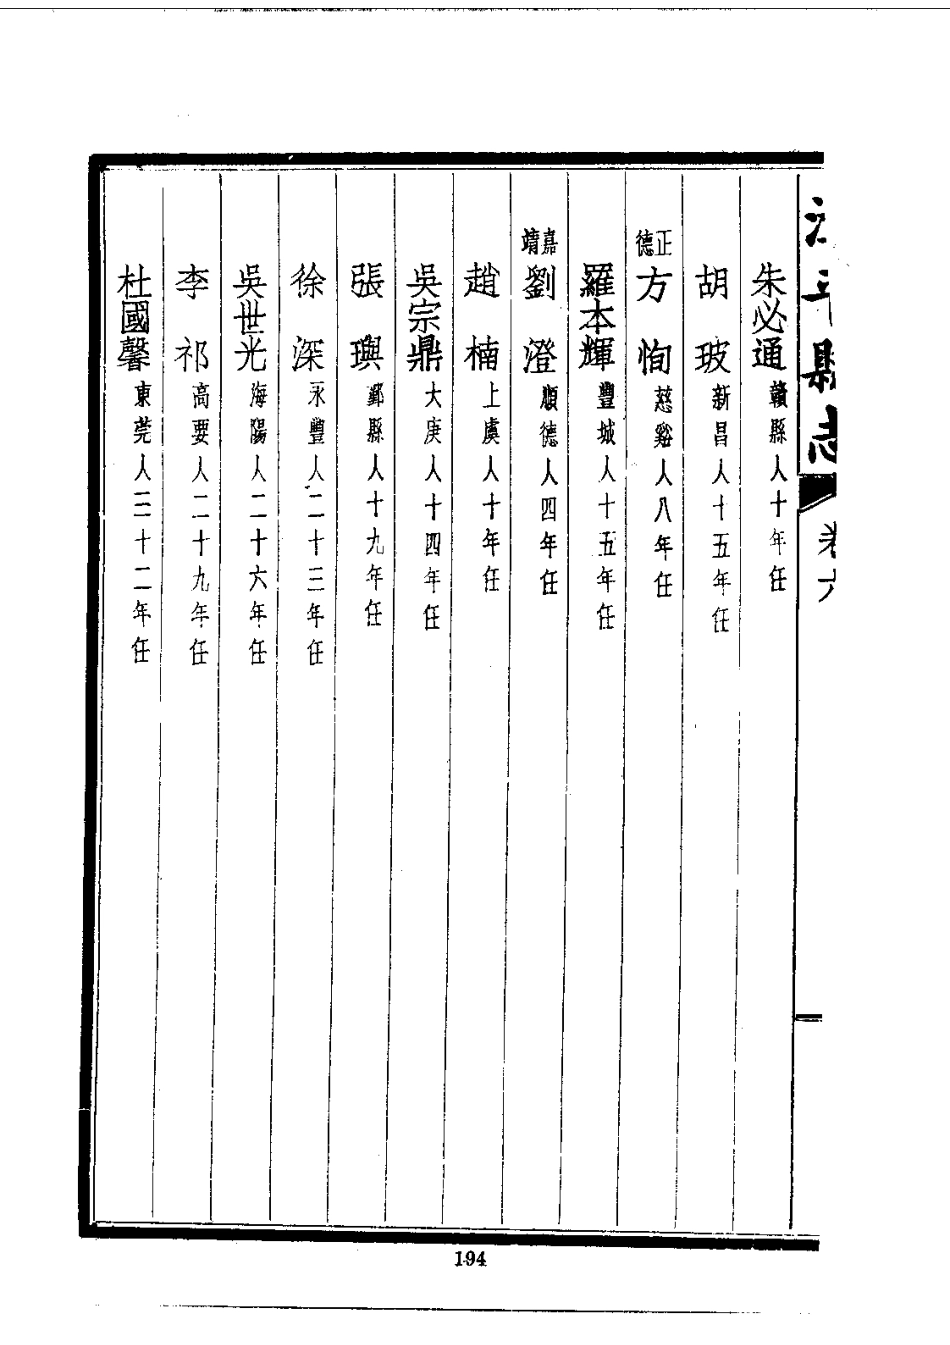 縣志 卷六
朱必通贛縣人十年任
胡玻新昌人十五年任
正德方恂慈谿人八年任
羅本輝豐城人十五年任
嘉靖劉澄順德人四年任
趙楠上虞人十年任
吳宗鼎大庾人十四年任
張璵鄞縣人十九年任
徐深永豐人二十三年任
吳世光海陽人二十六年任
李祁高要人二十九年任
杜國馨東莞人三十二年任
194